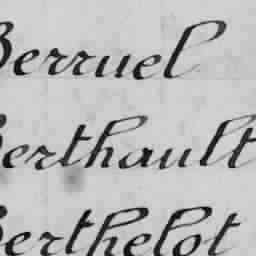 Berruel
Berthault
Berthelot